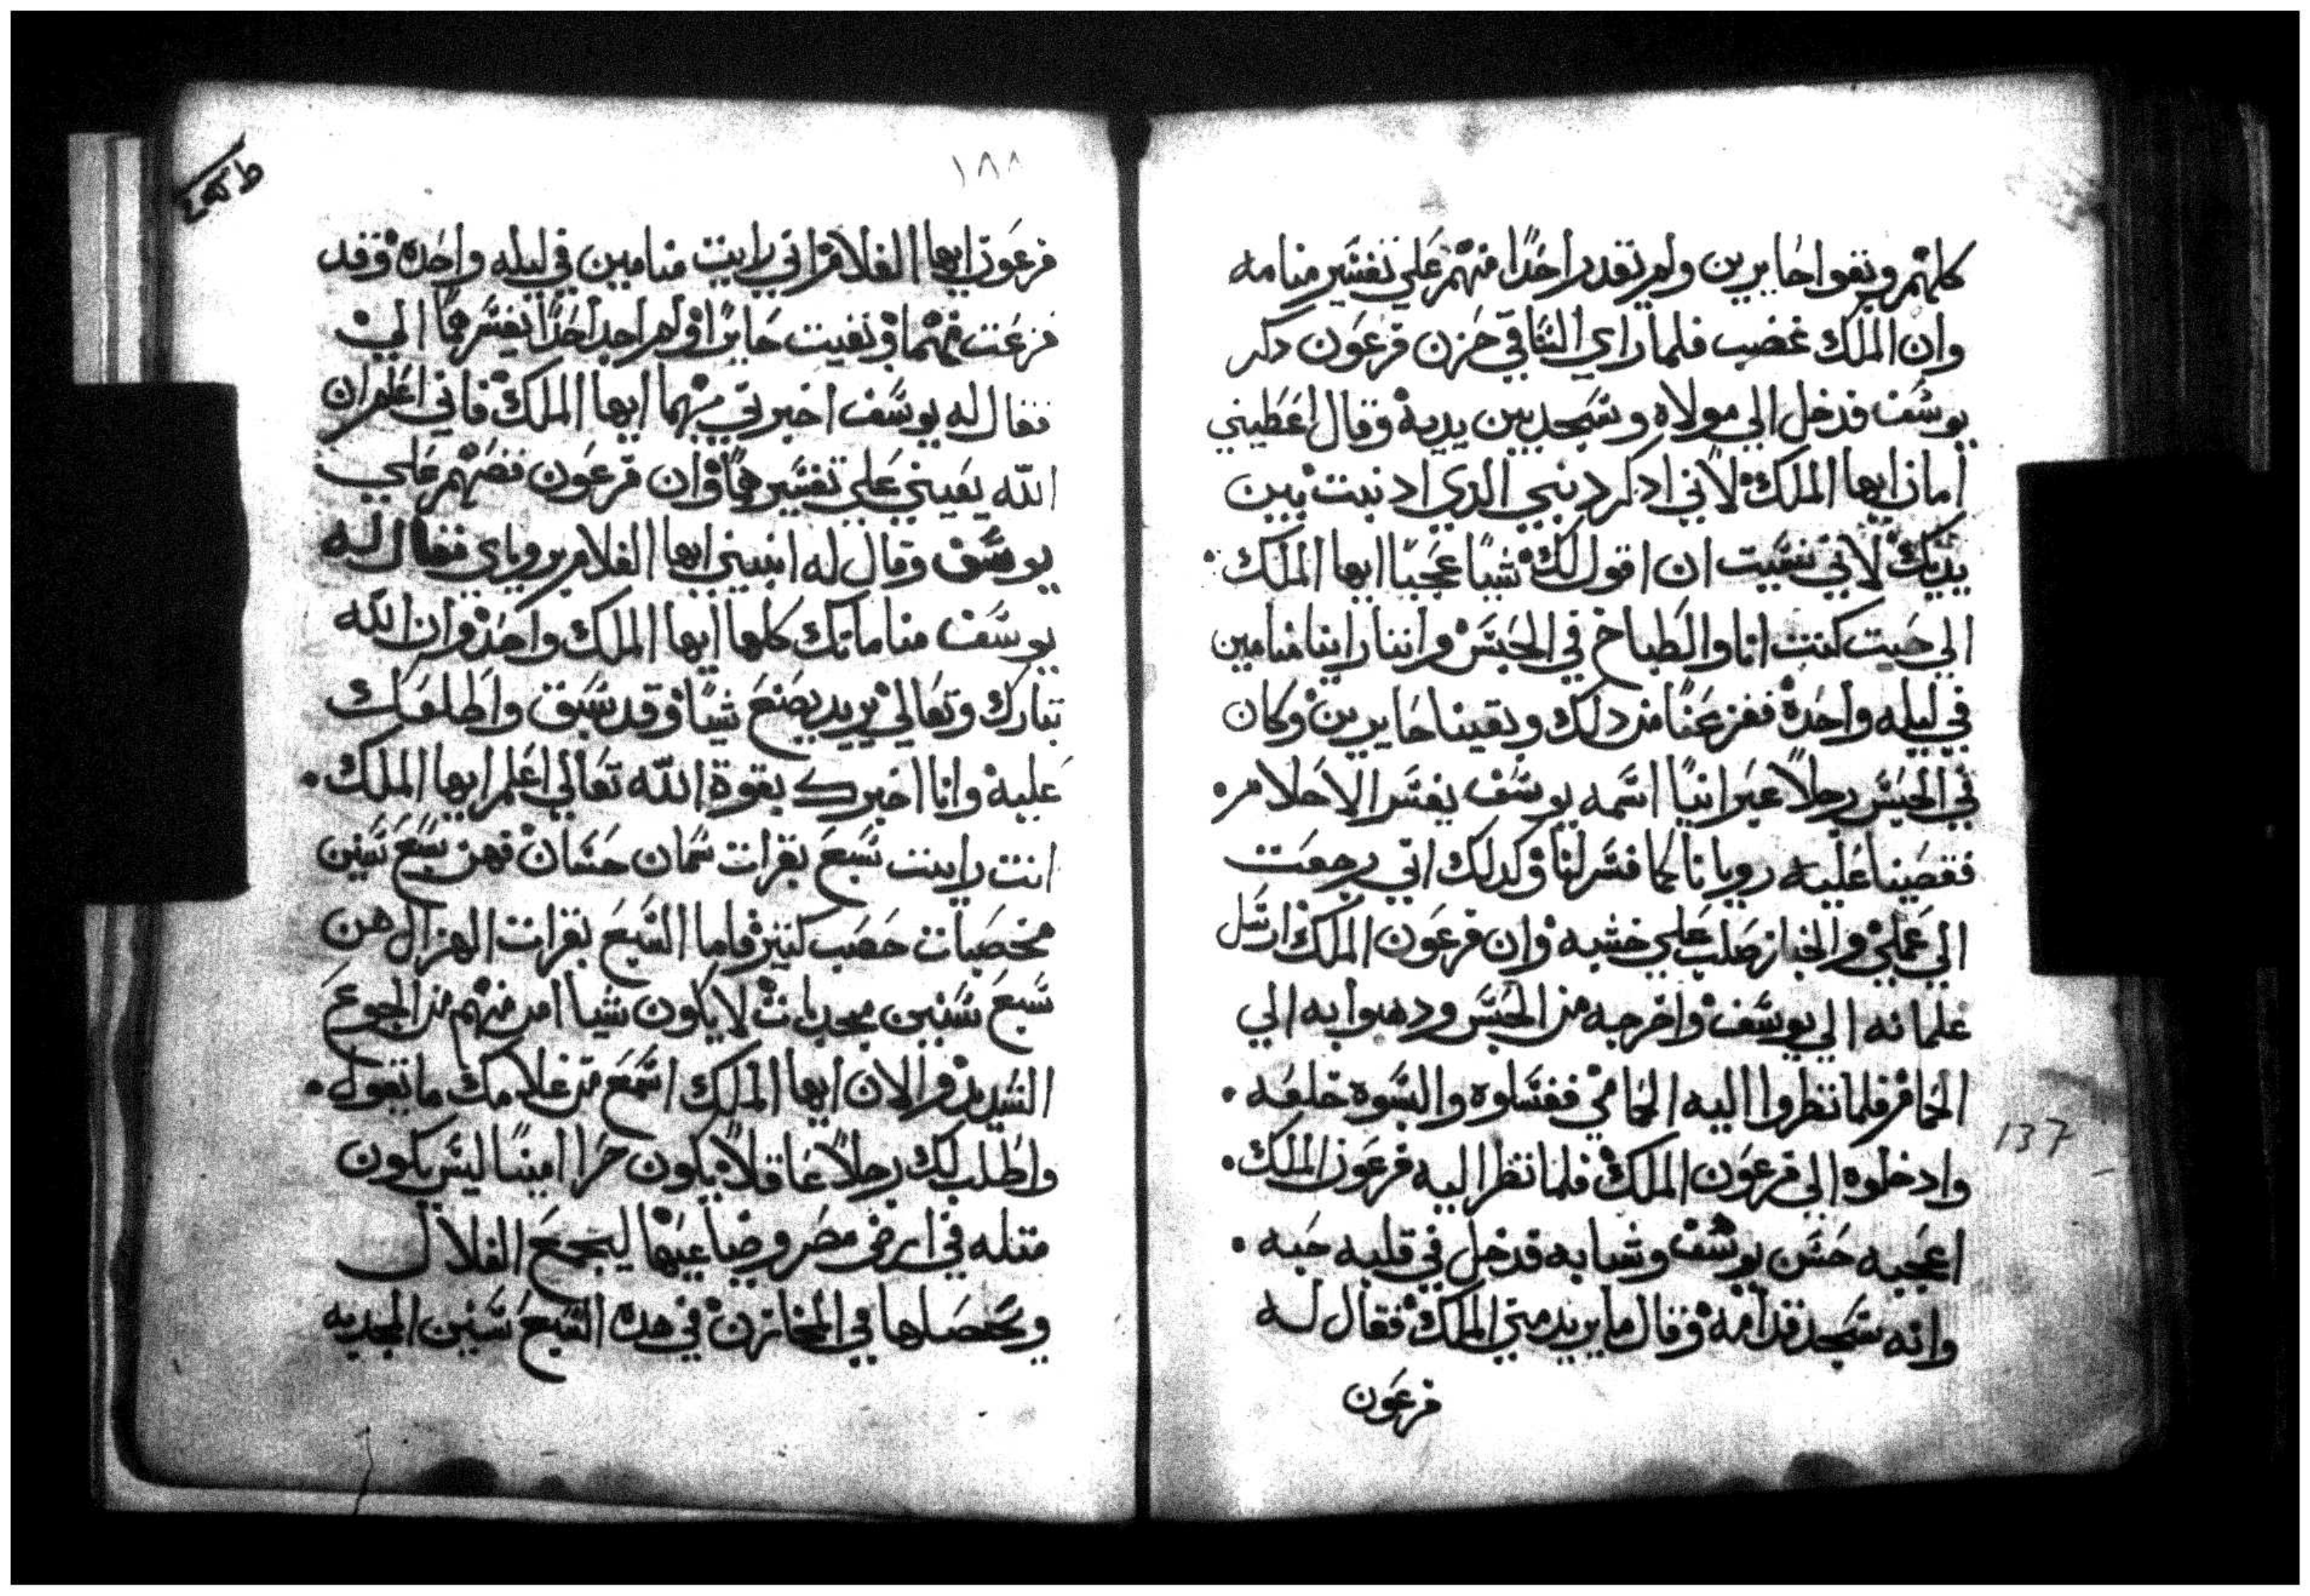 كلهم وبقوا حايرين ولم تقدر احدًا منهم علي تفسير منامه
وان الملك غضب فلما راي الساقي حزن فرعون دكر
يوسف فدخل الي مولاه وسجد بين يديه وقال اعطيني
امان ايها الملك لاني ادكر دنبي الدي ادنبت بين
يديك لاني نسيت ان اقول لك شيا عجبًا ايها الملك.
الي حيت كنت انا والطباخ في الحبس واننا راينا منامين
في ليله واحدة ففزعنا من دلك وبقينا حايرين وكان
في الحبس رجلًا عبرانيًا اسمه يوسف يفسر الاحلام.
فقصينا عليه رويانا كما فسر لنا وكدلك اني رجعت
الي عملي والخباز صلب علي خشبه وان فرعون الملك ارسل
غلمانه الي يوسف واخرجه من الحبس ودهبوا به الي
الحمام فلما نظروا اليه الحمامي فغسلوه والبسوه خلعه.
وادخلوه الي فرعون الملك فلما نظر اليه فرعون الملك.
اعجبه حسن يوسف وشبابه فدخل في قلبه حبه.
وانه سجد قدامه وقال ما يريد مني الملك فقال له
فرعون
137
١٨٨
فرعون ايها الغلام اني رايت منامين في ليله واحدة وقد
فزعت منهما وبقيت حايرًا ولم اجد احدًا يفسرهما الي
فقال له يوسف اخبرني بهما ايها الملك فاني اعلم ان
الله يعيني علي تفسيرهما وان فرعون قصهم علي
يوسف وقال له انبيني ايها الغلام بروياي فقال له
يوسف مناماتك كلها ايها الملك واحد وان الله
تبارك وتعالي يريد يصنع شيا وقد سبق واطلعك
عليه وانا اخبرك بقوة الله تعالي اعلم ايها الملك.
انت رايت سبع بقرات سمان حسان فهن سبع سنين
مخصبات خصب كتير فاما السبع بقرات الهزال هن
سبع سنين مجدبات لا يكون شيا امر منهم من الجوع
الشديد والان ايها الملك اسمع من غلامك ما تقول.
واطلب لك رجلًا عاقلًا يكون حرا امينًا ليس يكون
متله في ارض مصر وضياعها ليجمع الغلال
ويحصلها في المخازن في هده السبع سنين المجدبه